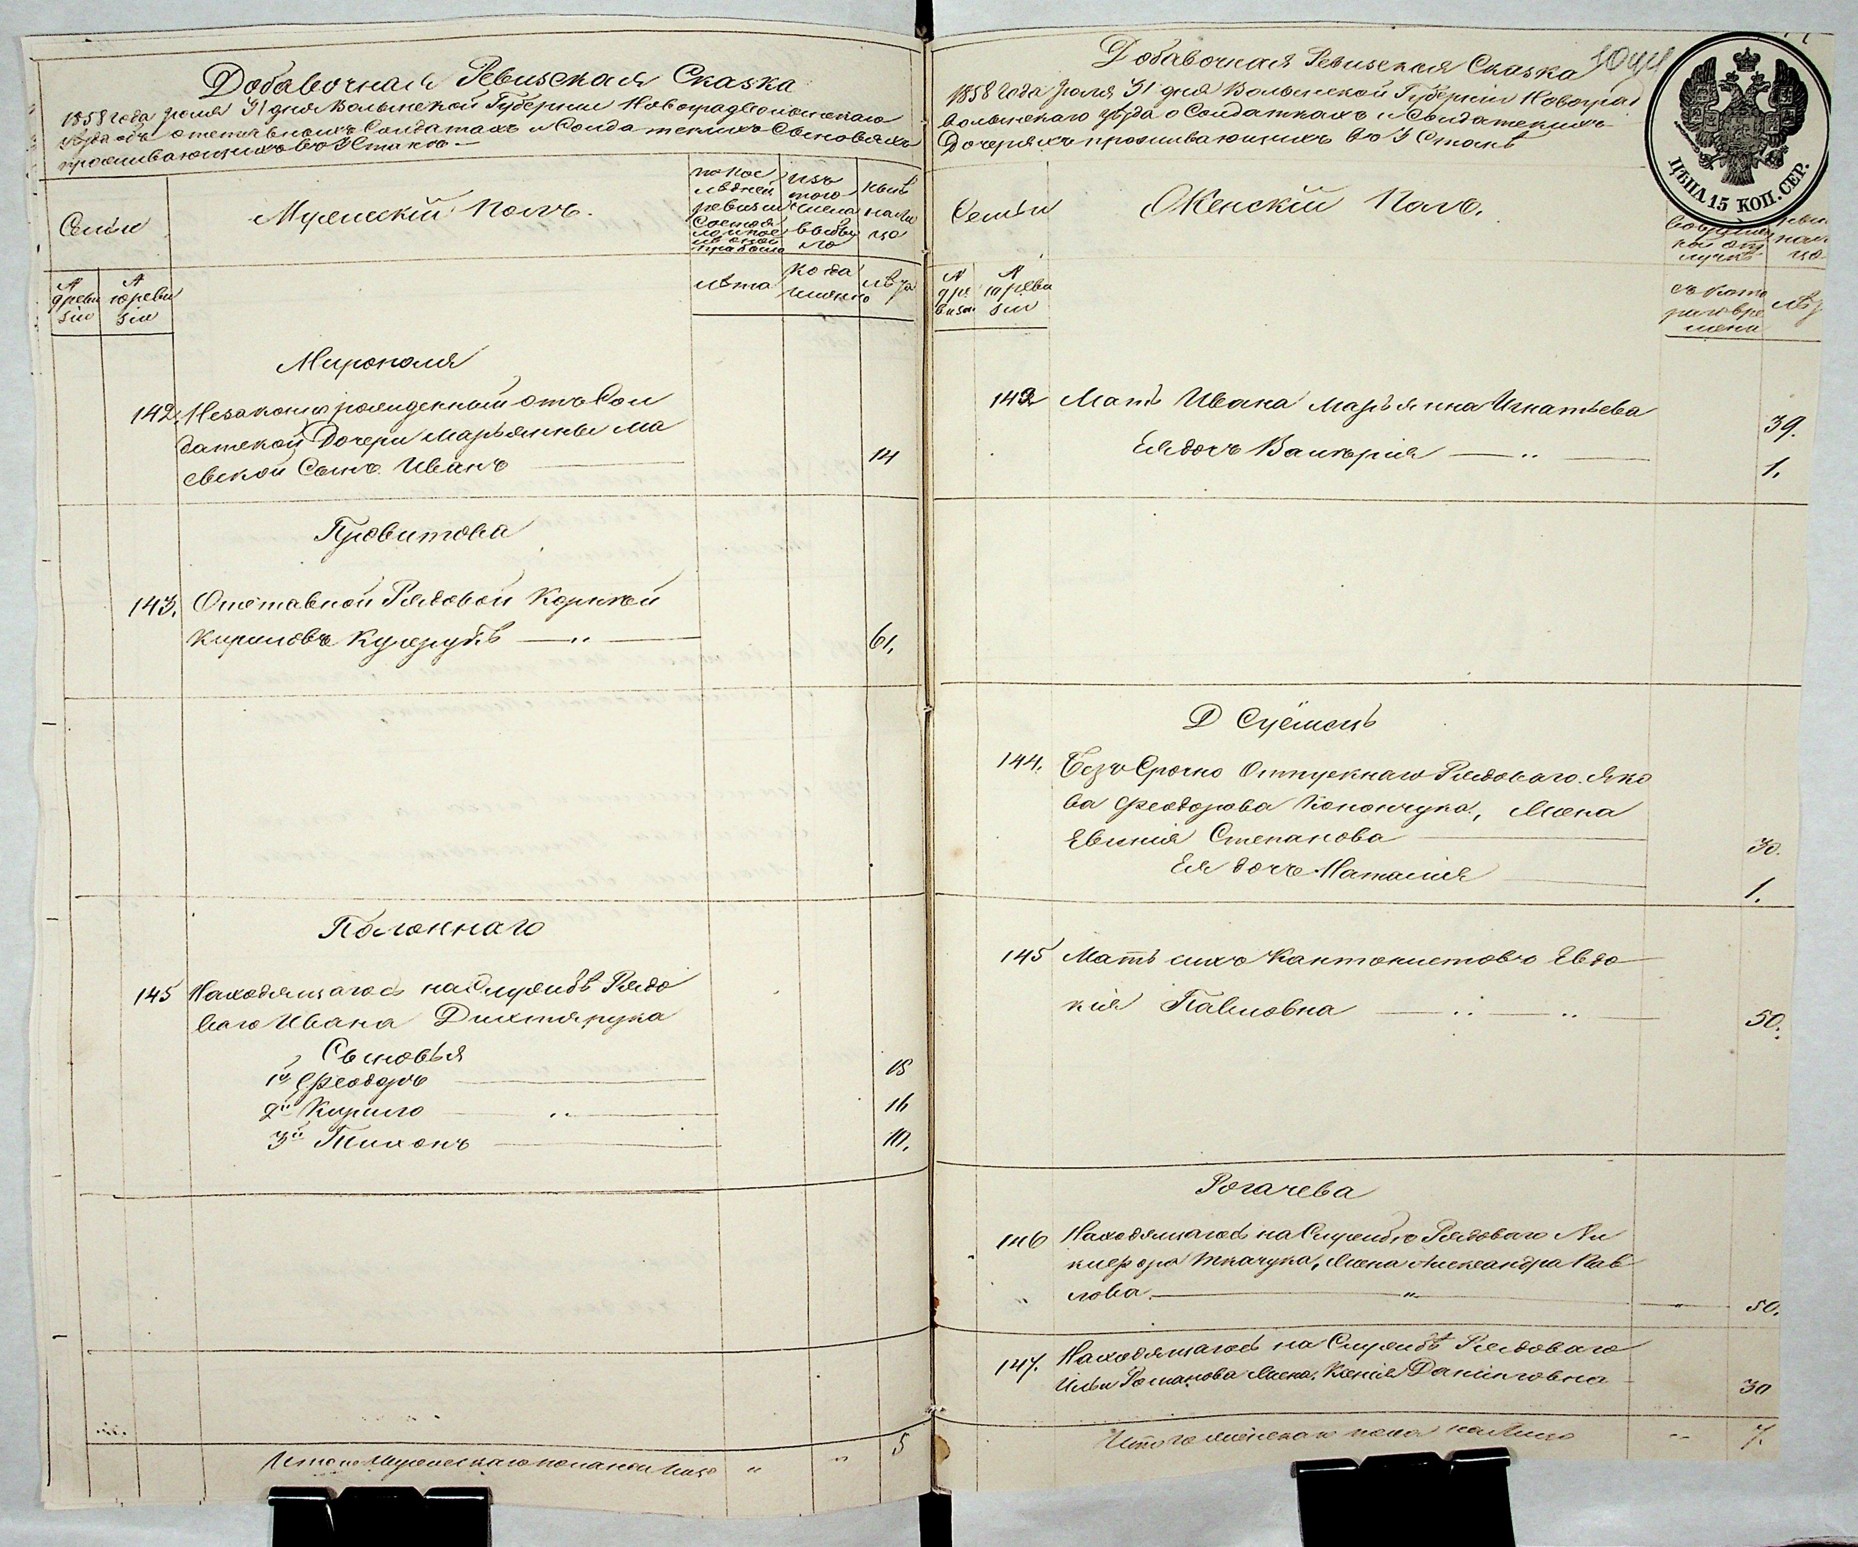 Добавочная Ревизская Сказка
1858 года Іюля 31 дня Волынской Губерніи Новоградволынскаго
уѣзда объ отставныхъ Солдатахъ и Солдатскихъ Сыновьяхъ
проживающихъ во 3 Станѣ
Семьи
Мужескій Полъ.
по пос
лѣдней
ревизіи
Состоя
ло
изъ
того
числа
выбы
ло
нынѣ
на ли
цо
№
9 реви
зіи
№
10 реви
зіи
лѣта
когда
именно
лѣта
Мирополя
142. Незаконно рожденный отъ Сол
датской Дочери Марьянны Ма
евской Сынъ Иванъ 14
Провитова
143. Отставной Рядовой Корнѣй
Кириловъ 61.
Полоннаго
145 Находящагося на Службѣ Рядо
ваго Ивана Дихтярука
Сыновья
1й Феодоръ 18
2й Кирило 16
3й Тихонъ 10.
Итого Мужескаго пола на лицо " " 5
Добавочная Ревизская Сказка
1858 года Іюля 31 дня Волынской Губерніи Новоград
волынскаго уѣзда о Солдаткахъ и Солдатскихъ
Дочеряхъ проживающихъ во 3 Станѣ
ЦѢНА 15 КОП. СЕР.
Семьи
Женскій Полъ.
во временной
от
лучкѣ
на ли
цо
№
9 ре
визіи
№
10 реви
зіи
съ кото
раго вре
мени
лѣта
142 Мать Ивана Марьянна Игнатьева 39.
Ея дочь Валерія 1.
Д
144. Безъ Срочно Отпускнаго Рядоваго Яко
ва Феодорова Конончука, Жена
Евгенія Степанова 30.
Ея дочь Наталія 1.
145 Мать сихъ Кантонистовъ Евдо
кія Павловна 50.
Рогачева
146 Находящагося на Службѣ Рядоваго Ни
кифора Ткачука, Жена Александра Пав
лова 50.
147. Находящагося на Службѣ Рядоваго
Ильи Романова Жена, Ксенія Даниловна 30
Итого женскаго пола на лицо " 7.